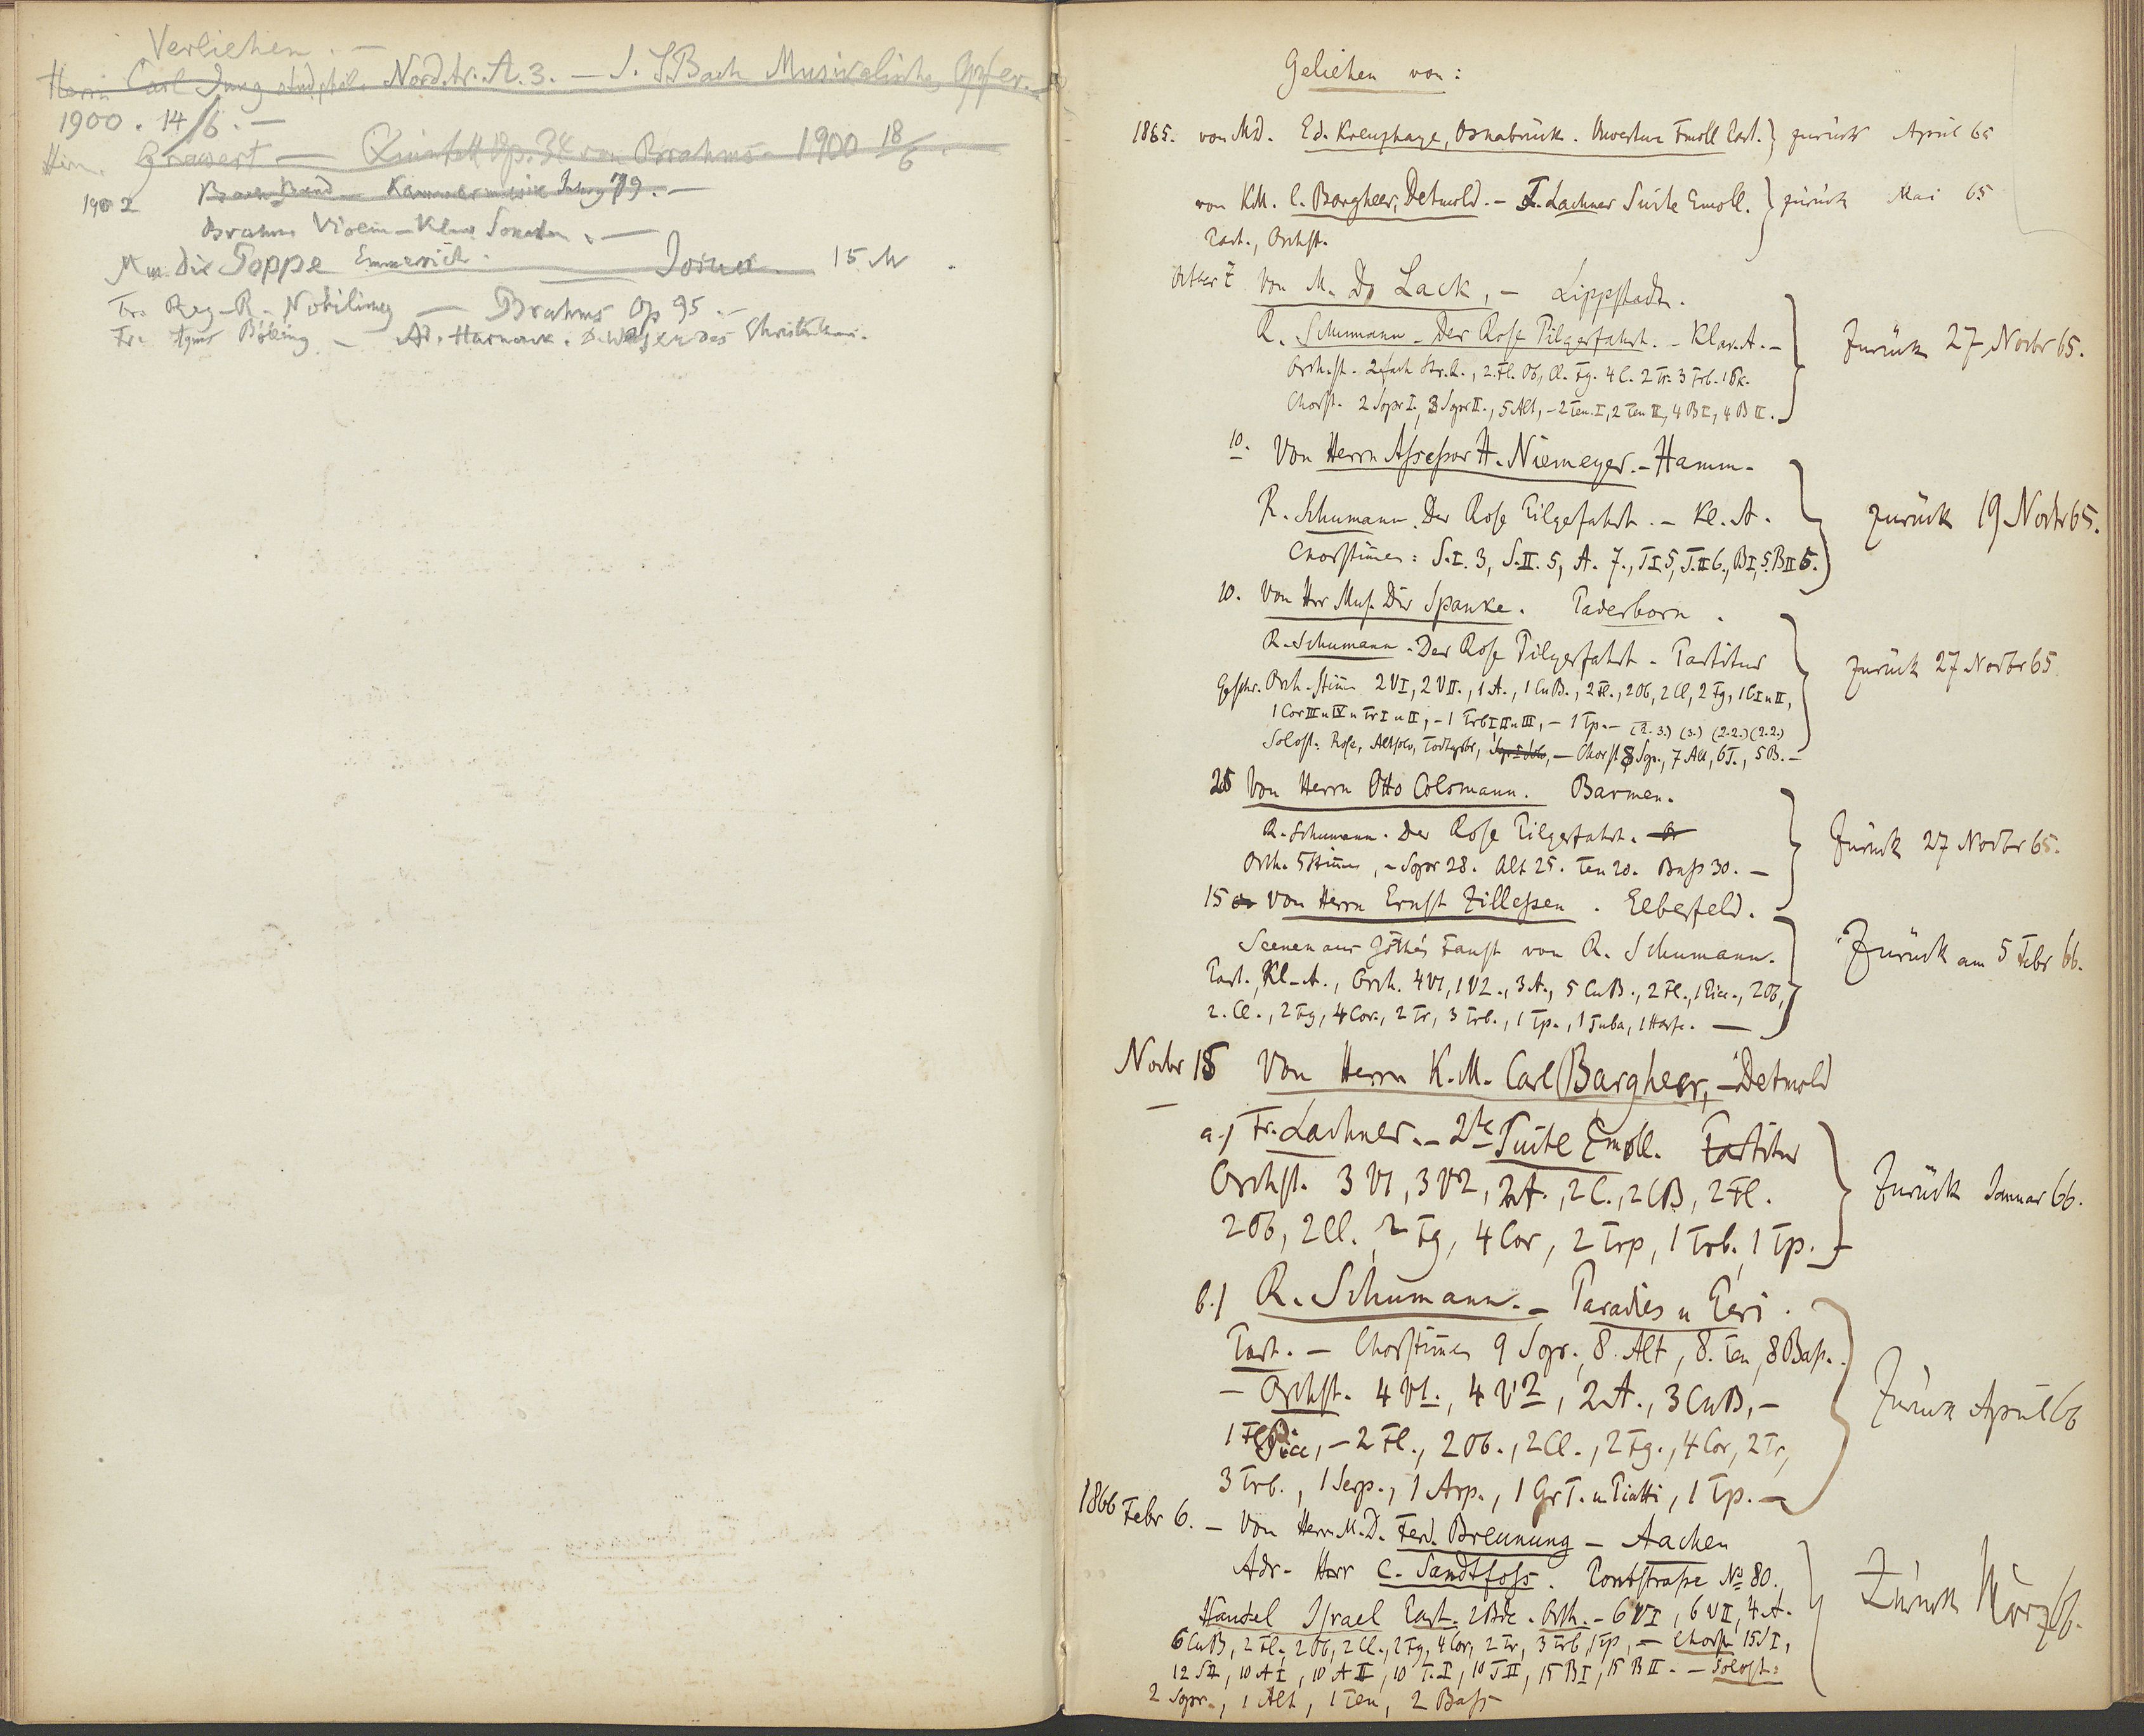 Verliehen. —
Herrn Carl Jung stud. phil. Nordstr. A. 3. — J. S. Bach Musikalisches Opfer.
1900. 14/6. —
Hrn. Grawert — Quintett Op. 34 von Brahms — 1900 18/6.
1902 Band — Kammermusik 79. —
Brahms Violin-Klav Sonaten. —
M. M. Die Toppe Emmerich. 15 M.
Fr. Reg-R. Nobiling — Brahms Op 95. —
Fr. Agnes Bölling — Ad. Harnack. D. Wesen des Christentum.
Geliehen von:
1865. von Md. Ed. Kreuzhage, Osnabrück. Ouverture Fmoll Part. } zurück April 65
von KM. C. Bargheer, Detmold. — F. Lachner Suite Emoll. } zurück Mai 65
Part., Orchst.
October 7 Von M. D. Lack, — Lippstadt.
R. Schumann — Der Rose Pilgerfahrt. — Klav. A. —
Orchst. 2fach Str. Q., 2. Fl. Ob, Cl. Fg. 4 C. 2 Tr. 3 Trb. 1 Pk.
Chorst. 2 Sopr I., 3 Sopr II., 5 Alt, — 2 Ten. I, 2 Ten II, 4 B I, 4 B II.
Zurück 27 Novbr 65.
10. Von Herrn Assessor H. Niemeyer. — Hamm.
R. Schumann. Der Rose Pilgefahrt. — Kl. A.
Chorstimen: S. I. 3, S. II. 5, A. 7., T I 5, T. II 6., B I, 5. B II 5.
zurück 19 Novbr 65.
10. Von Hrr Mus. Dir Spanke. Paderborn.
R. Schumann. Der Rose Pilgerfahrt. Partitur
Geschr. Orch. Stim 2 V I, 2 V II., 1 A., 1 C u B., 2 Fl., 2 Ob, 2 Cl, 2 Fg, 1 C I u II,
1 Cor III u IV u Tr I u II, — 1 Trb I II u III, — 1 Tp. — (2. 3.) (3.) (2.2.) (2.2.)
Solost: Rose, Altsolo, Todtgrbr, — Chorst 8 Sopr., 7 Alt, 6 T., 5 B. —
Zurück 27 Novbr 65
25 Von Herrn Otto Colsmann. Barmen.
R. Schumann. Der Rose Pilgerfahrt.
Orch. Stimen, — Sopr 28. Alt 25. Ten 20. Bass 30. —
Zurück 27 Novbr 65.
15 Von Herrn Ernst Zillessen. Elberfeld.
Scenen aus Göthe's Faust von R. Schumann.
Part., Kl-A., Orch. 4 V1, 1 V2., 3 A., 5 C u B., 2 Fl., 1 Picc., 2 Ob,
2. Cl., 2 Fg, 4 Cor., 2 Tr, 3 Trb., 1 Tp., 1 Tuba, 1 Harfe. —
Zurück am 5 Febr 66.
Novbr 15 Von Herrn K. M. Carl Bargheer, — Detmold
a.) Fr. Lachner. — 2te Suite Emoll. Partitur
Orchst. 3 V1, 3 V2, 2 A., 2 C., 2 CB, 2 Fl.
2 Ob, 2 Cl. 2 Fg, 4 Cor, 2 Trp, 1 Trb. 1 Tp. —
Zurück Januar 66.
b.) R. Schumann. — Paradies u Peri.
Part. — Chorstimen 9 Sopr. 8. Alt, 8. Ten, 8 Bass.
— Orchst. 4 V1., 4 V2, 2 A., 3 C u B, —
1 Fl Picc, — 2 Fl., 2 Ob., 2 Cl., 2 Fg., 4 Cor, 2 Tr,
3 Trb., 1 Serp., 1 Arp., 1 Gr T. u. Piatti, 1 Tp. —
Zurück April 66
1866 Febr 6. — Von Herrn M. D. Ferd. Breunung — Aachen
Adr. Herr C. Sandtfoss. Pontstrasse No 80.
Händel Israel Part. 2 Bde. Orch. — 6 V I, 6 V II, 4 A.
6 C u B, 2 Fl. 2 Ob, 2 Cl., 2 Fg, 4 Cor, 2 Tr, 3 Trb, 1 Tp, — Chorst 15 S I,
12 S II, 10 A I, 10 A II, 10 T. I, 10 T II, 15 B I, 15 B II. — Solost:
2 Sopr., 1 Alt, 1 Ten, 2 Bass
Zurück März 66.